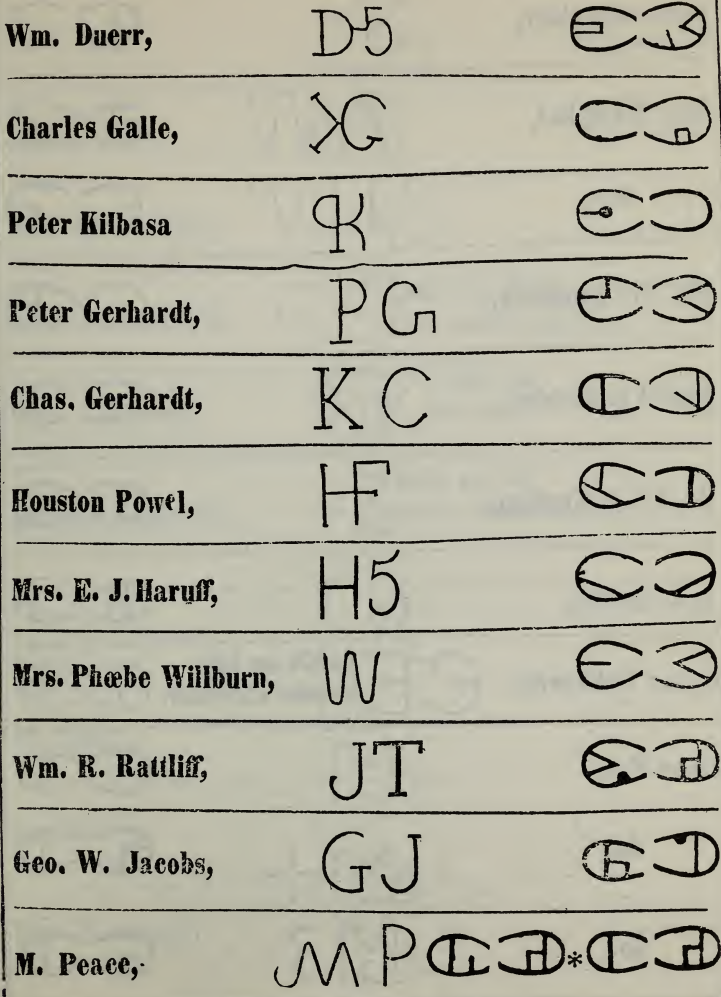 Wm. Duerr, D-5
Charles Galle, XG
Peter Kilbasa PK
Peter Gerhardt, P G
Chas. Gerhardt, K C
Houston Powel, HF
Mrs. E. J. Haruff, H5
Mrs. Phœbe Willburn, W
Wm. R. Rattliff, JT
Geo. W. Jacobs, GJ
M. Peace, M P *